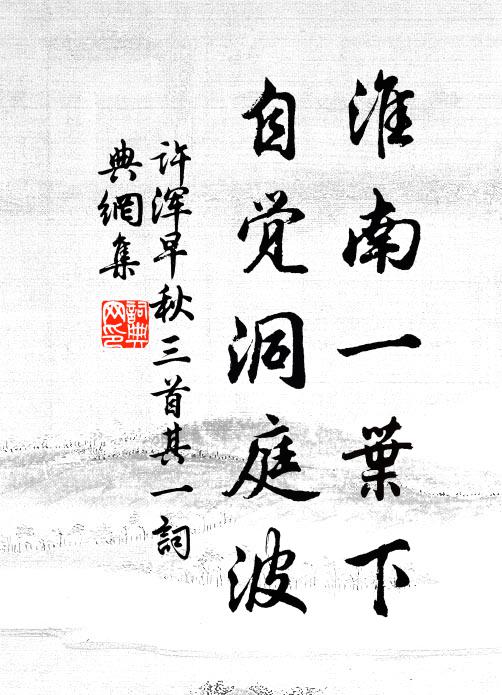 淮南一葉下
自觉洞庭波
许浑早秋三首其一詞
典網集
詞典网印